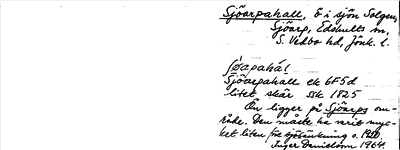 Sjöarpahall, ö i sjön Solgen,
Sjöarp, Edshults sn,
S. Vedbo hd, Jönk. l.
Sjöarpahall ek 6F5d
litet skär SSK 1825
Ön ligger på Sjöarps om-
råde. Den måste ha varit myc-
ket liten före sjösänkning o.
Inger Danielsson 1964.